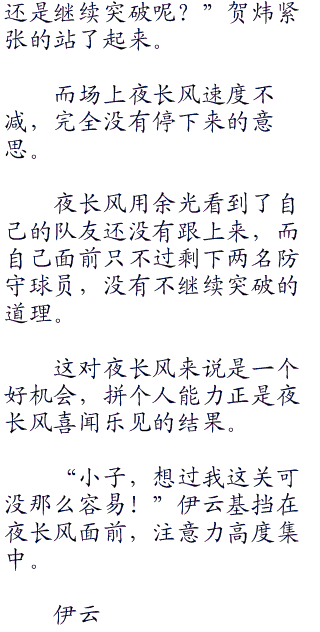 还是继续突破呢？”贺炜紧
张的站了起来。
而场上夜长风速度不
减，完全没有停下来的意
思。
夜长风用余光看到了自
己的队友还没有跟上来，而
自己面前只不过剩下两名防
守球员，没有不继续突破的
道理。
这对夜长风来说是一个
好机会，拼个人能力正是夜
长风喜闻乐见的结果。
“小子，想过我这关可
没那么容易！”伊云基挡在
夜长风面前，注意力高度集
中。
伊云